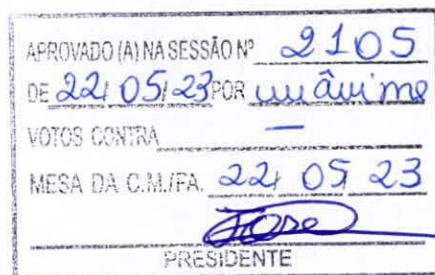 APROVADO (A) NA SESSÃO Nº 2105
DE 22/05/23 POR unânime
VOTOS CONTRA —
MESA DA C.M./FA. 22/05 23
PRESIDENTE